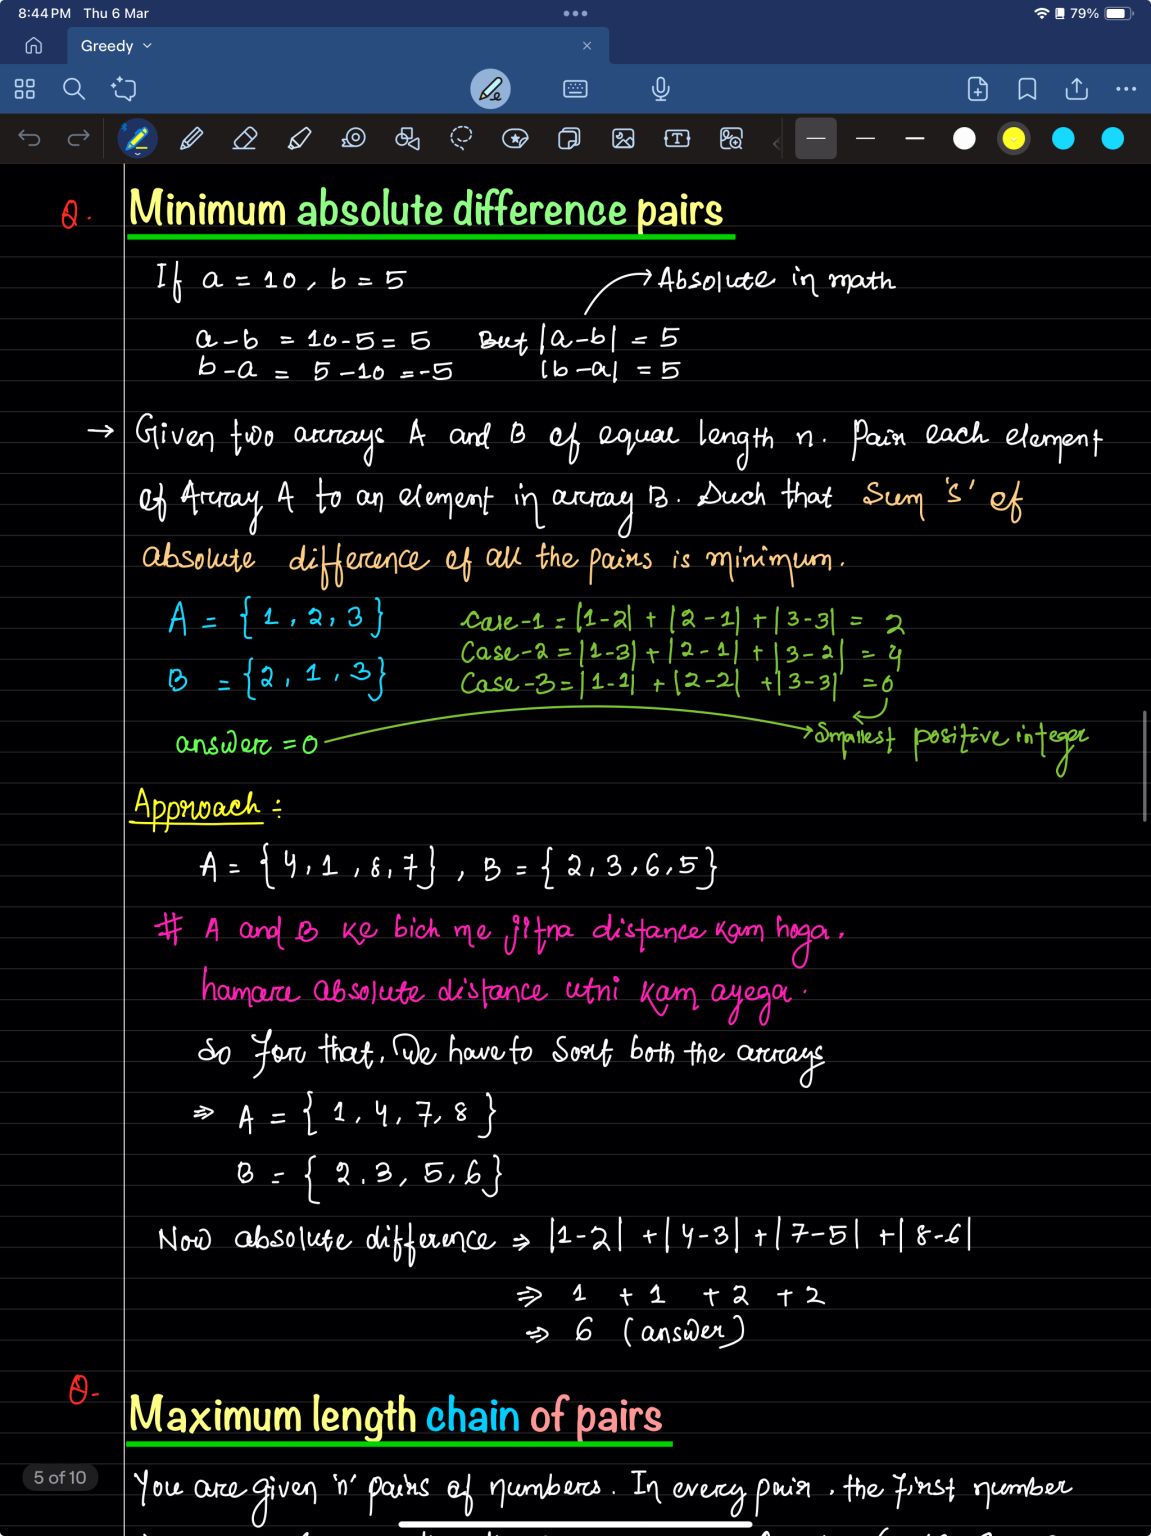 8:44 PM Thu 6 Mar 79%
Greedy
Q. Minimum absolute difference pairs
If a = 10, b = 5
Absolute in math
a-b = 10-5 = 5 But |a-b| = 5
b-a = 5-10 = -5 |b-a| = 5
→ Given two arrays A and B of equal length n. Pair each element
of Array A to an element in array B. Such that Sum 's' of
absolute difference of all the pairs is minimum.
A = {1, 2, 3}
B = {2, 1, 3}
Case-1 = |1-2| + |2-1| + |3-3| = 2
Case-2 = |1-3| + |2-1| + |3-2| = 4
Case-3 = |1-1| + |2-2| + |3-3| = 0
answer = 0
Smallest positive integer
Approach :-
A = {4, 1, 8, 7}, B = {2, 3, 6, 5}
# A and B ke bich me jitna distance kam hoga.
hamara absolute distance utni kam ayega.
So for that, We have to Sort both the arrays
⇒ A = {1, 4, 7, 8}
B = {2. 3, 5, 6}
Now absolute difference ⇒ |1-2| + |4-3| + |7-5| + |8-6|
⇒ 1 + 1 + 2 + 2
⇒ 6 (answer)
Q- Maximum length chain of pairs
5 of 10
You are given 'n' pairs of numbers. In every pair, the first number